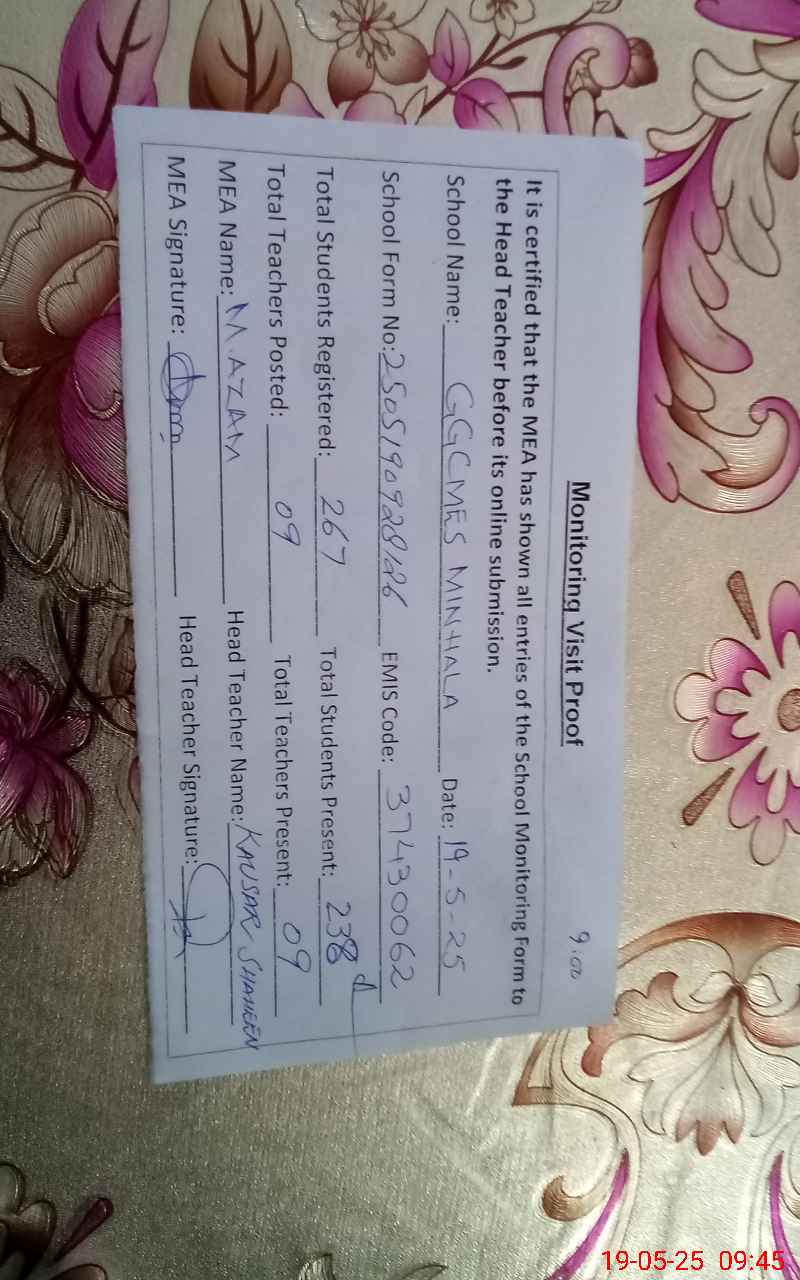 9:00
Monitoring Visit Proof
It is certified that the MEA has shown all entries of the School Monitoring Form to
the Head Teacher before its online submission.
School Name: GGCMES MINHALA Date: 19-5-25
School Form No: 2505190928126 EMIS Code: 37430062
Total Students Registered: 267 Total Students Present: 238
Total Teachers Posted: 09 Total Teachers Present: 09
MEA Name: M. AZAM Head Teacher Name: KAUSAR SHAHEEN
MEA Signature: Head Teacher Signature:
19-05-25 09:45